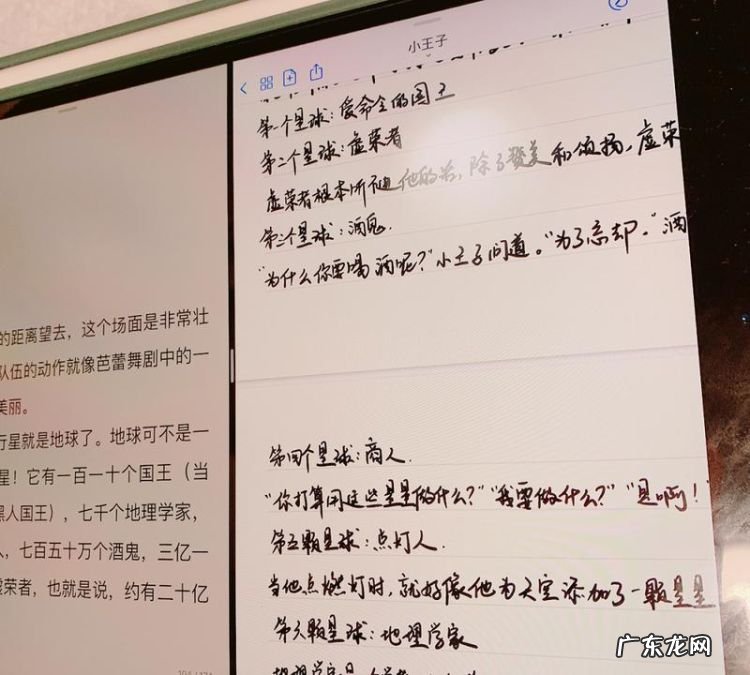 小王子
第一个星球：爱命令的国王
第二个星球：虚荣者
虚荣者根本听不进他的总，除了赞美和颂扬，虚荣
第三个星球：酒鬼.
“为什么你要喝酒呢？”小王子问道。“为了忘却。”酒
的距离望去，这个场面是非常壮
队伍的动作就像芭蕾舞剧中的一
美丽。
行星就是地球了。地球可不是一
星！它有一百一十个国王（当
黑人国王），七千个地理学家，
，七百五十万个酒鬼，三亿一
虚荣者，也就是说，约有二十亿
第四个星球：商人.
“你打算用这些星星做什么？”“我要做什么？”“是啊！”
第五颗星球：点灯人.
当他点燃灯时，就好像他为天空添加了一颗星星
第六颗星球：地理学家
广东龙网